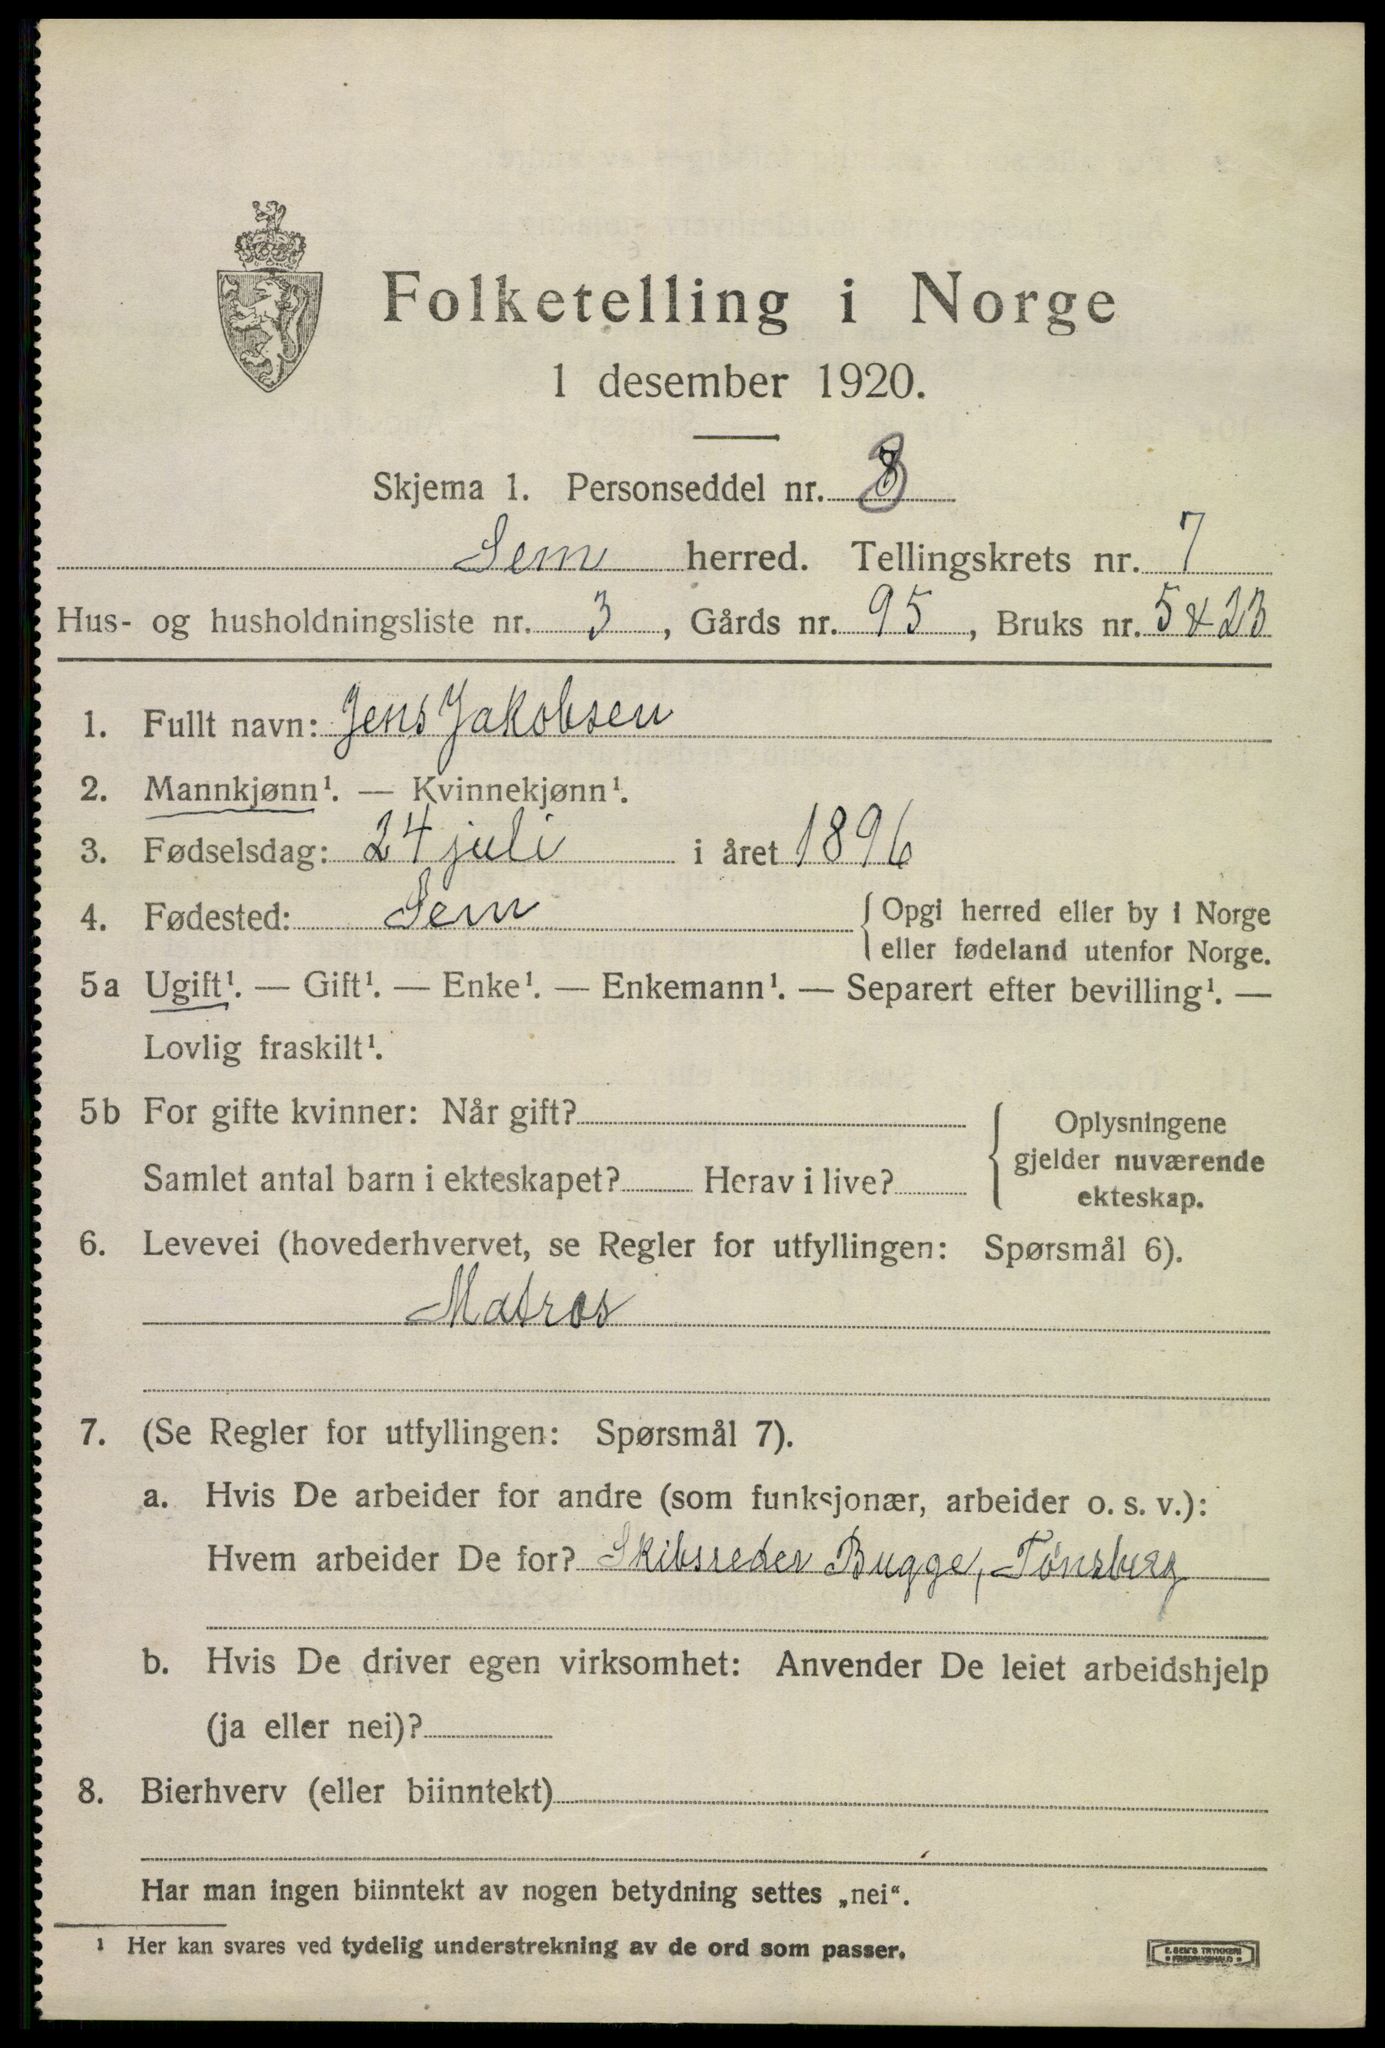 Folketelling i Norge
1 desember 1920.
Skjema 1. Personseddel nr. 8
Sem herred. Tellingskrets nr. 7
Hus- og husholdningsliste nr. 3, Gårds nr. 95, Bruks nr. 5 & 23
1. Fullt navn: Jens Jakobsen
2. Mannkjønn¹. — Kvinnekjønn¹.
3. Fødselsdag: 24 juli i året 1896
4. Fødested: Sem {Opgi herred eller by i Norge
eller fødeland utenfor Norge.
5a Ugift¹. — Gift¹. — Enke¹. — Enkemann¹. — Separert efter bevilling¹. —
Lovlig fraskilt¹.
5b For gifte kvinner: Når gift?
Samlet antal barn i ekteskapet? Herav i live?
{Oplysningene
gjelder nuværende
ekteskap.
6. Levevei (hovederhvervet, se Regler for utfyllingen: Spørsmål 6).
Matros
7. (Se Regler for utfyllingen: Spørsmål 7).
a. Hvis De arbeider for andre (som funksjonær, arbeider o. s. v.):
Hvem arbeider De for? Skibsreder Bugge, Tönsberg
b. Hvis De driver egen virksomhet: Anvender De leiet arbeidshjelp
(ja eller nei)?
8. Bierhverv (eller biinntekt)
Har man ingen biinntekt av nogen betydning settes „nei“.
¹ Her kan svares ved tydelig understrekning av de ord som passer.
E. SEM'S TRYKKERI
FREDRIKSHALD